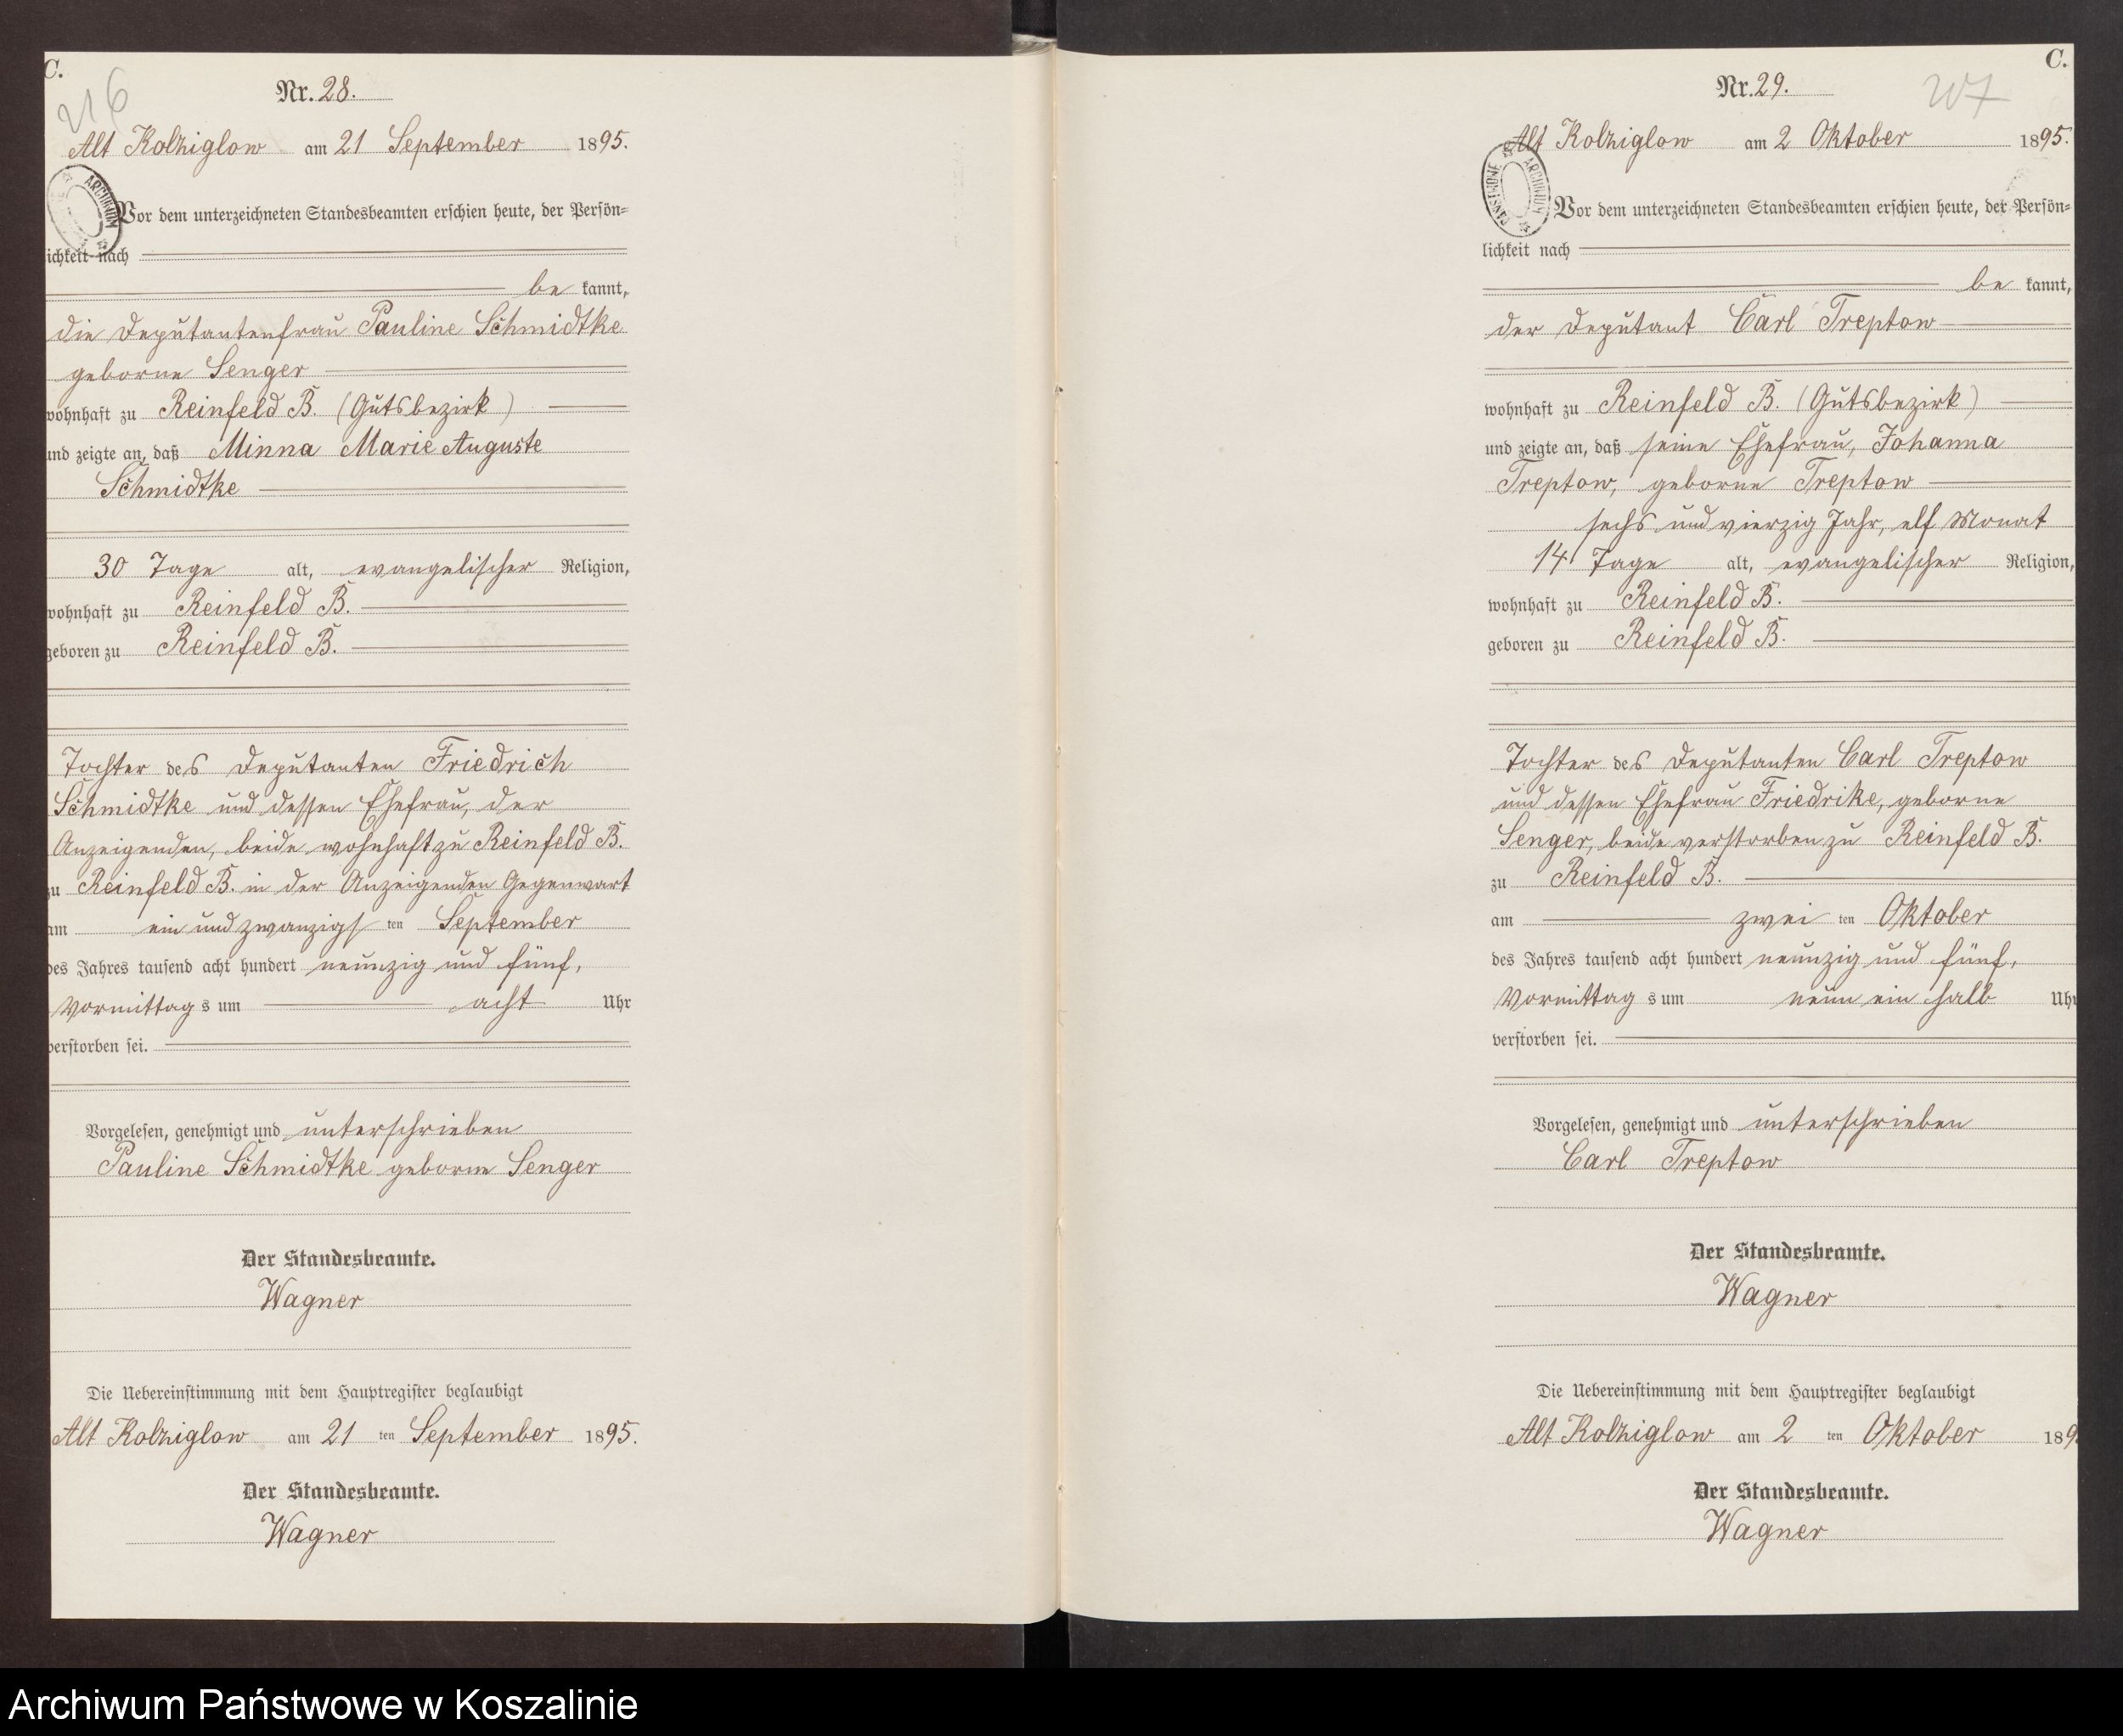 C.
216
Nr. 28.
Alt Kolziglow am 21 September 1895.
ARCHIWUM
Vor dem unterzeichneten Standesbeamten erschien heute, der Persön-
ichkeit nach
be kannt,
die Deputantenfrau Pauline Schmidtke
geborne Senger
wohnhaft zu Reinfeld B. (Gutsbezirk)
und zeigte an, daß Minna Marie Auguste
Schmidtke
30 Tage alt, evangelischer Religion,
wohnhaft zu Reinfeld B.
geboren zu Reinfeld B.
Tochter des Deputanten Friedrich
Schmidtke und dessen Ehefrau, der
Anzeigenden, beide wohnhaft zu Reinfeld B.
zu Reinfeld B. in der Anzeigenden Gegenwart
am ein und zwanzigsten September
des Jahres tausend acht hundert neunzig und fünf,
Vormittags um acht Uhr
verstorben sei.
Vorgelesen, genehmigt und unterschrieben
Pauline Schmidtke geborne Senger
Der Standesbeamte.
Wagner
Die Uebereinstimmung mit dem Hauptregister beglaubigt
Alt Kolziglow am 21 ten September 1895.
Der Standesbeamte.
Wagner
C.
Nr. 29.
Alt Kolziglow am 2 Oktober 1895.
ARCHIWUM PAŃSTWOWE
Vor dem unterzeichneten Standesbeamten erschien heute, der Persön-
lichkeit nach
be kannt,
der Deputant Carl Treptow
wohnhaft zu Reinfeld B. (Gutsbezirk)
und zeigte an, daß seine Ehefrau, Johanna
Treptow, geborne Treptow
sechs und vierzig Jahr, elf Monat
14 Tage alt, evangelischer Religion,
wohnhaft zu Reinfeld B.
geboren zu Reinfeld B.
Tochter des Deputanten Carl Treptow
und dessen Ehefrau Friedrike, geborne
Senger, beide verstorben zu Reinfeld B.
zu Reinfeld B.
am zwei ten Oktober
des Jahres tausend acht hundert neunzig und fünf,
Vormittags um neun ein halb Uhr
verstorben sei.
Vorgelesen, genehmigt und unterschrieben
Carl Treptow
Der Standesbeamte.
Wagner
Die Uebereinstimmung mit dem Hauptregister beglaubigt
Alt Kolziglow am 2 ten Oktober 189
Der Standesbeamte.
Wagner
Archiwum Państwowe w Koszalinie